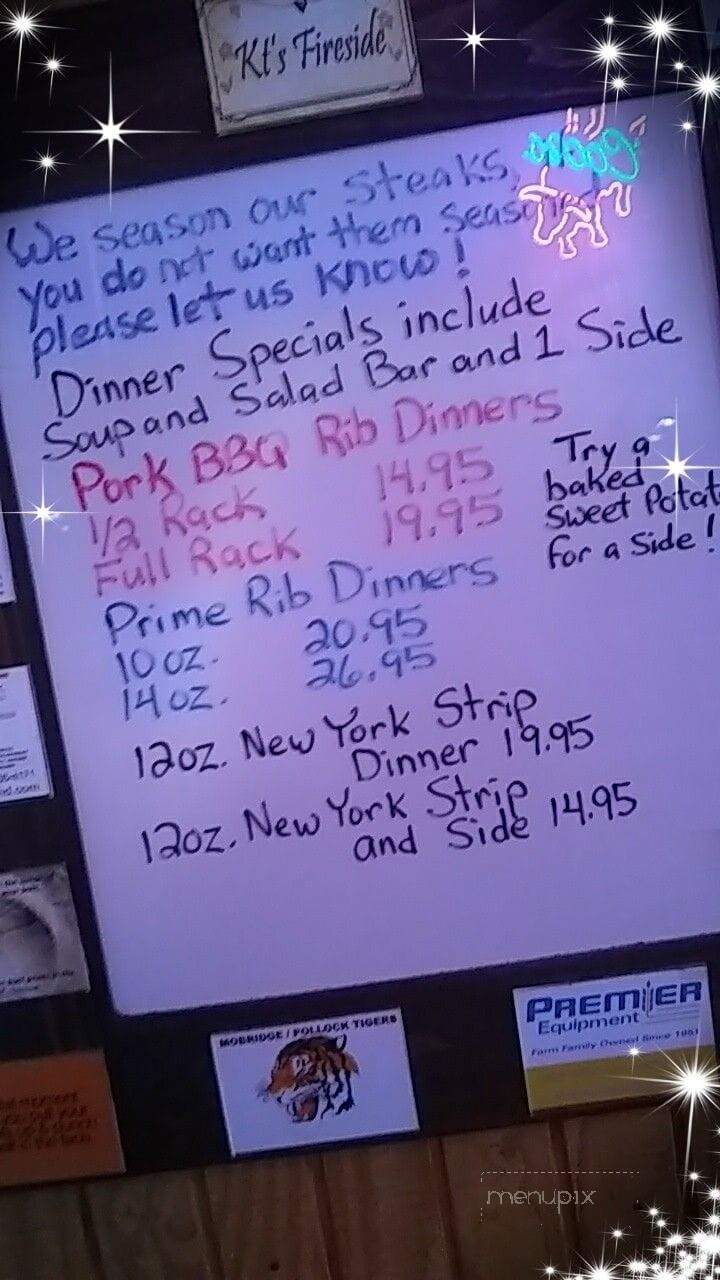 Kt's Fireside
We season our steaks,
you do not want them
please let us know!
Dinner Specials include
Soup and Salad Bar and 1 Side
Pork BBQ Rib Dinners
1/2 Rack 14.95
Full Rack 19.95
Try a
baked
Sweet Potat
for a Side!
Prime Rib Dinners
10 oz. 20.95
14 oz. 26.95
12oz. New York Strip
Dinner 19.95
12oz. New York Strip
and Side 14.95
MOBRIDGE / POLLOCK TIGERS
PREMIER
Equipment
Farm Family Owned Since 1981
menupix